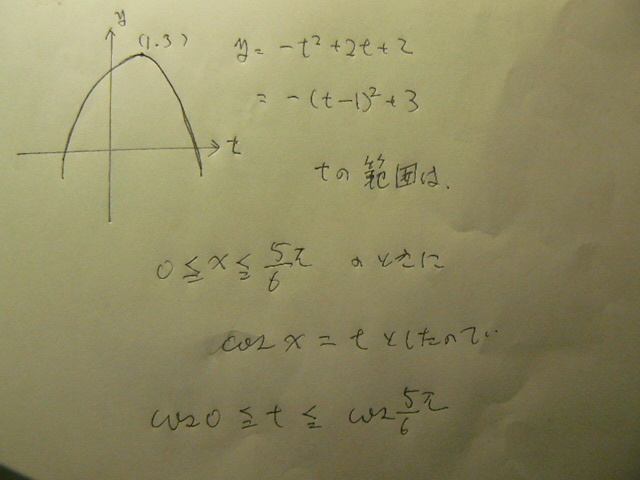 y
(1.3)
t
y = -t²+2t+2
= -(t-1)²+3
tの範囲は、
0 ≦ x ≦ 5/6 π のときに
cos x = t としたので…
cos0 ≦ t ≦ cos 5/6 π